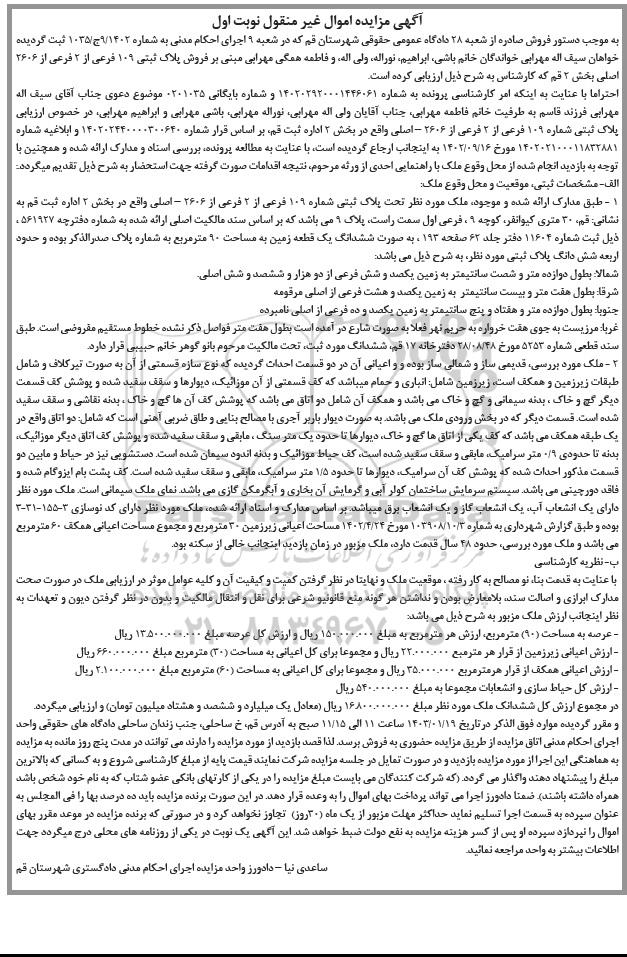 آگهی مزایده اموال غیر منقول نوبت اول
به موجب دستور فروش صادره از شعبه ۲۸ دادگاه عمومی حقوقی شهرستان قم که در شعبه ۹ اجرای احکام مدنی به شماره ۹/۱۴۰۲ج/۱۰۳۵ ثبت گردیده
خواهان سیف اله مهرابی خواندگان خانم باشی، ابراهیم، نوراله، ولی اله، و فاطمه همگی مهرابی مبنی بر فروش پلاک ثبتی ۱۰۹ فرعی از ۲ فرعی از ۲۶۰۶
اصلی بخش ۲ قم که کارشناس به شرح ذیل ارزیابی کرده است.
احتراما با عنایت به اینکه امر کارشناسی پرونده به شماره ۱۴۰۲۰۲۹۲۰۰۰۱۴۴۶۰۶۱ و شماره بایگانی ۰۲۰۱۰۳۵ موضوع دعوی جناب آقای سیف اله
مهرابی فرزند قاسم به طرفیت خانم فاطمه مهرابی، جناب آقایان ولی اله مهرابی، نوراله مهرابی، باشی مهرابی و ابراهیم مهرابی، در خصوص ارزیابی
پلاک ثبتی شماره ۱۰۹ فرعی از ۲ فرعی از ۲۶۰۶ – اصلی واقع در بخش ۲ اداره ثبت قم، بر اساس قرار شماره ۱۴۰۲۰۲۴۴۰۰۰۰۳۰۰۶۴۰ و ابلاغیه شماره
۱۴۰۲۰۲۱۰۰۰۱۱۸۳۲۸۸۱ مورخ ۱۴۰۲/۰۹/۱۶ به اینجانب ارجاع گردیده است، با عنایت به مطالعه پرونده، بررسی اسناد و مدارک ارائه شده و همچنین با
توجه به بازدید انجام شده از محل وقوع ملک با راهنمایی احدی از ورثه مرحوم، نتیجه اقدامات صورت گرفته جهت استحضار به شرح ذیل تقدیم میگردد:
الف- مشخصات ثبتی، موقعیت و محل وقوع ملک:
۱ - طبق مدارک ارائه شده و موجود، ملک مورد نظر تحت پلاک ثبتی شماره ۱۰۹ فرعی از ۲ فرعی از ۲۶۰۶ – اصلی واقع در بخش ۲ اداره ثبت قم به
نشانی: قم، ۳۰ متری کیوانفر، کوچه ۹ ، فرعی اول سمت راست، پلاک ۹ می باشد که بر اساس سند مالکیت اصلی ارائه شده به شماره دفترچه ۵۶۱۹۲۷ ،
ذیل ثبت شماره ۱۱۶۰۴ دفتر جلد ۶۲ صفحه ۱۹۳ ، به صورت ششدانگ یک قطعه زمین به مساحت ۹۰ مترمربع به شماره پلاک صدرالذکر بوده و حدود
اربعه شش دانگ پلاک ثبتی مورد نظر، به شرح ذیل می باشد:
شمالا: بطول دوازده متر و شصت سانتیمتر به زمین یکصد و شش فرعی از دو هزار و ششصد و شش اصلی.
شرقا: بطول هفت متر و بیست سانتیمتر به زمین یکصد و هشت فرعی از اصلی مرقومه
جنوبا: بطول دوازده متر و هفتاد و پنج سانتیمتر به زمین یکصد و ده فرعی از اصلی نامبرده
غربا: مرزیست به جوی هفت خرواره به حریم نهر فعلا به صورت شارع در آمده است بطول هفت متر فواصل ذکر نشده خطوط مستقیم مفروضی است. طبق
سند قطعی شماره ۵۲۵۳ مورخ ۲۸/۰۸/۴۸ دفترخانه ۱۷ قم، ششدانگ مورد ثبت، تحت مالکیت مرحوم بانو گوهر خانم حبیبی قرار دارد.
۲ – ملک مورد بررسی، قدیمی ساز و شمالی ساز بوده و و اعیانی آن در دو قسمت احداث گردیده که نوع سازه قسمتی از آن به صورت تیرکلاف و شامل
طبقات زیرزمین و همکف است، زیرزمین شامل: انباری و حمام میباشد که کف قسمتی از آن موزائیک، دیوارها و سقف سفید شده و پوشش کف قسمت
دیگر گچ و خاک ، بدنه سیمانی و گچ و خاک می باشد و همکف آن شامل دو اتاق می باشد که پوشش کف آن ها گچ و خاک ، بدنه نقاشی و سقف سفید
شده است. قسمت دیگر که در بخش ورودی ملک می باشد. به صورت دیوار باربر آجری با مصالح بنایی و طاق ضربی آهنی است که شامل: دو اتاق واقع در
یک طبقه همکف می باشد که کف یکی از اتاق ها گچ و خاک، دیوارها تا حدود یک متر سنگ ، مابقی و سقف سفید شده و پوشش کف اتاق دیگر موزائیک،
بدنه تا حدودی ۰/۹ متر سرامیک، مابقی و سقف سفید شده است، کف حیاط موزائیک و بدنه اندود سیمان شده است. دستشویی نیز در حیاط و مابین دو
قسمت مذکور احداث شده که پوشش کف آن سرامیک، دیوارها تا حدود ۱/۵ متر سرامیک، مابقی و سقف سفید شده است. کف پشت بام ایزوگام شده و
فاقد دورچینی می باشد. سیستم سرمایش ساختمان کولر آبی و گرمایش آن بخاری و آبگرمکن گازی می باشد. نمای ملک سیمانی است. ملک مورد نظر
دارای یک انشعاب آب، یک انشعاب گاز و یک انشعاب برق میباشد. بر اساس مدارک و اسناد ارائه شده، ملک مورد نظر دارای کد نوسازی ۳-۱۵۵-۳۱-۳
بوده و طبق گزارش شهرداری به شماره ۱۰۳۹۰۸/۱۰/۳ مورخ ۱۴۰۲/۴/۲۴ مساحت اعیانی زیرزمین ۳۰ مترمربع و مجموع مساحت اعیانی همکف ۶۰ مترمربع
می باشد و ملک مورد بررسی، حدود ۴۸ سال قدمت دارد، ملک مزبور در زمان بازدید اینجانب خالی از سکنه بود.
ب- نظریه کارشناسی
با عنایت به قدمت بنا، نو مصالح به کار رفته ، موقعیت ملک و نهایتا در نظر گرفتن کمیت و کیفیت آن و کلیه عوامل موثر در ارزیابی ملک در صورت صحت
مدارک ابرازی و اصالت سند، بلامعارض بودن و نداشتن هر گونه منع قانونیو شرعی برای نقل و انتقال مالکیت و بدون در نظر گرفتن دیون و تعهدات به
نظر اینجانب ارزش ملک مزبور به شرح ذیل می باشد:
- عرصه به مساحت (۹۰) مترمربع، ارزش هر مترمربع به مبلغ ۱۵۰.۰۰۰.۰۰۰ ریال و ارزش کل عرصه مبلغ ۱۳.۵۰۰.۰۰۰.۰۰۰ ریال
- ارزش اعیانی زیرزمین از قرار هر مترمبع ۲۲.۰۰۰.۰۰۰ ریال و مجموعا برای کل اعیانی به مساحت (۳۰) مترمربع مبلغ ۶۶۰.۰۰۰.۰۰۰ ریال
- ارزش اعیانی همکف از قرار هرمترمربع ۳۵.۰۰۰.۰۰۰ ریال و مجموعا برای کل اعیانی به مساحت (۶۰) مترمربع مبلغ ۲.۱۰۰.۰۰۰.۰۰۰ ریال
- ارزش کل حیاط سازی و انشعابات مجموعا به مبلغ ۵۴۰.۰۰۰.۰۰۰ ریال
در مجموع ارزش کل ششدانگ ملک مورد نظر مبلغ ۱۶.۸۰۰.۰۰۰.۰۰۰ ریال (معادل یک میلیارد و ششصد و هشتاد میلیون تومان) و ارزیابی میگردد.
و مقرر گردیده موارد فوق الذکر در تاریخ ۱۴۰۳/۰۱/۱۹ ساعت ۱۱ الی ۱۱/۱۵ صبح به آدرس قم، خ ساحلی، جنب زندان ساحلی دادگاه های حقوقی واحد
اجرای احکام مدنی اتاق مزایده از طریق مزایده حضوری به فروش برسد. لذا قصد بازدید از مورد مزایده را دارند می توانند در مدت پنج روز مانده به مزایده
به هماهنگی این اجرا از مورد مزایده بازدید و در صورت تمایل در جلسه مزایده شرکت نمایند قیمت پایه از مبلغ کارشناسی شروع و به کسانی که بالاترین
مبلغ را پیشنهاد دهند واگذار می گردد. (که شرکت کنندگان می بایست مبلغ مزایده را در یکی از کارتهای بانکی عضو شتاب که به نام خود شخص باشد
همراه داشته باشند). ضمنا دادورز اجرا می تواند پرداخت بهای اموال را به وعده قرار دهد. در این صورت برنده مزایده باید ده درصد بها را فی المجلس به
عنوان سپرده به قسمت اجرا تسلیم نماید حداکثر مهلت مزبور از یک ماه (۳۰روز) تجاوز نخواهد کرد و در صورتی که برنده مزایده در موعد مقرر بهای
اموال را نپردازد سپرده او پس از کسر هزینه مزایده به نفع دولت ضبط خواهد شد. این آگهی یک نوبت در یکی از روزنامه های محلی درج میگردد جهت
اطلاعات بیشتر به واحد مراجعه نمائید.
ساعدی نیا – دادورز واحد مزایده اجرای احکام مدنی دادگستری شهرستان قم